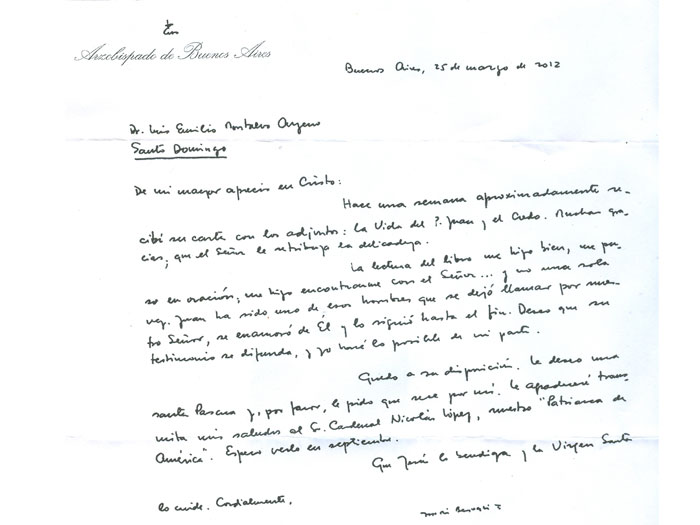 Arzobispado de Buenos Aires
Buenos Aires, 25 de marzo de 2012
Dr. Luis Emilio Montalvo Arzeno
Santo Domingo
De mi mayor aprecio en Cristo:
Hace una semana aproximadamente re-
cibí su carta con los adjuntos: la Vida del P. Juan y el Credo. Muchas gra-
cias; que el Señor le retribuya la delicadeza.
La lectura del libro me hizo bien, me pu-
so en oración, me hizo encontrarme con el Señor... y no una sola
vez. Juan ha sido uno de esos hombres que se dejó llamar por nues-
tro Señor, se enamoró de Él y lo siguió hasta el fin. Deseo que su
testimonio se difunda, y yo haré lo posible de mi parte.
Quedo a su disposición. Le deseo una
santa Pascua y, por favor, le pido que rece por mí. Le agradeceré trans-
mita mis saludos al Sr. Cardenal Nicolás López, nuestro "Patriarca de
América". Espero verlo en septiembre.
Que Jesús lo bendiga y la Virgen Santa
lo cuide. Cordialmente,